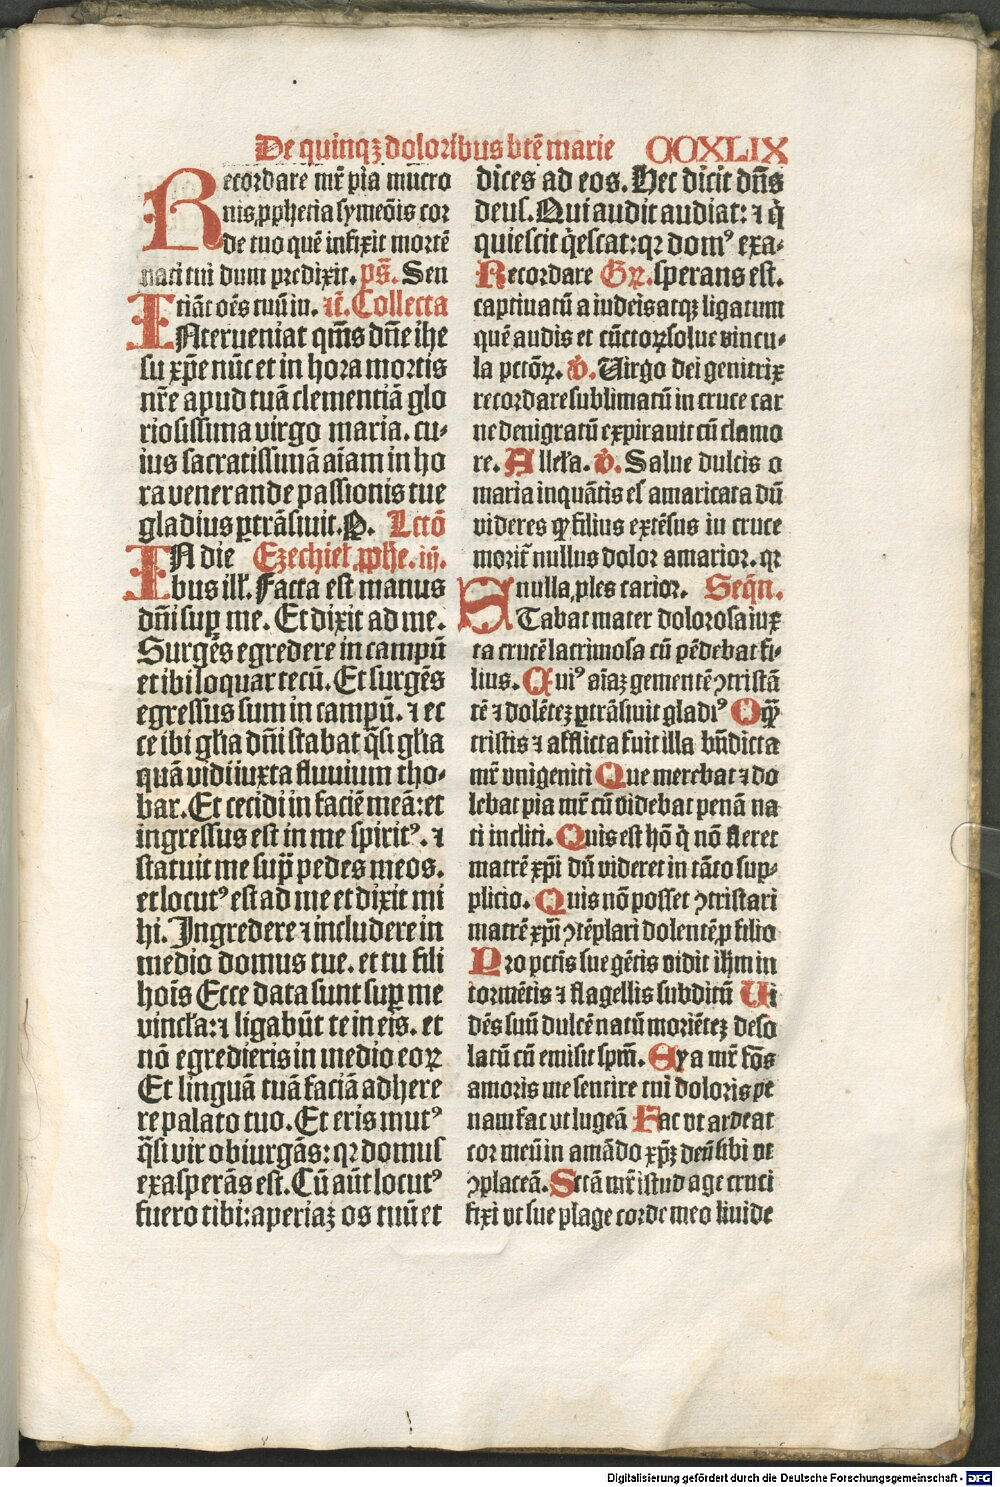 De quinqꝫ doloribus btē marie CCXLIX
Recordare mr̄ pia mucro
nis ꝓphetia symeōis cor
de tuo quē infixit mortē
nati tui dum predixit. ps̄. Sen
tiāt oēs tuū iu. v̄. Collecta
INterueniat qm̄s dn̄e ihe
su xp̄e nūc et in hora mortis
nr̄e apud tuā clementiā glo
riosissima virgo maria. cu-
ius sacratissimā aīam in ho
ra venerande passionis tue
gladius ꝑtrāsiuit. P. Lctō
IN die Ezechiel ꝓphe. iij.
bus ill̄. Facta est manus
dn̄i suꝑ me. Et dixit ad me.
Surgēs egredere in campū
et ibi loquar tecū. Et surgēs
egressus sum in campū. ⁊ ec
ce ibi gl̄ia dn̄i stabat q̄si gl̄ia
quā vidi iuxta fluuium cho-
bar. Et cecidi in faciē meā: et
ingressus est in me spiritꝰ. ⁊
statuit me suꝑ pedes meos.
et locutꝰ est ad me et dixit mi
hi. Ingredere ⁊ includere in
medio domus tue. et tu fili
hoīs Ecce data sunt suꝑ me
vincl̄a: ⁊ ligabūt te in eis. et
nō egredieris in medio eoꝝ
Et linguā tuā faciā adhere
re palato tuo. Et eris mutꝰ
q̄si vir obiurgās: qꝛ domus
exasperās est. Cū aūt locutꝰ
fuero tibi: aperiā os tuū et
dices ad eos. Hec dicit dn̄s
deus. Qui audit audiat: ⁊ q̄
quiescit q̄escat: qꝛ domꝰ exa-
Recordare Gꝛ. sperans est.
captiuatū a iudeis atqꝫ ligatum
quē audis et cūctoꝝ solue vincu-
la pctōꝝ. v̄. Virgo dei genitrix
recordare sublimatū in cruce car
ne denigratū expirauit cū clamo
re. Allel̄a. v̄. Salue dulcis o
maria inquātis es amaricata dū
videres ꝙ filius extēsus in cruce
morit̄ nullus dolor amarior. qꝛ
nulla ꝓles carior. Seqn̄.
STabat mater dolorosa iux
ta crucē lacrimosa cū pēdebat fi-
lius. Cuiꝰ aīaꝫ gementē ↄtristā
tē ⁊ dolēteꝫ ꝑtrāsiuit gladiꝰ O qꝫ̄
tristis ⁊ afflicta fuit illa bn̄dicta
mr̄ vnigeniti Que merebat ⁊ do
lebat pia mr̄ cū videbat penā na
ti incliti. Quis est hō q̄ nō fleret
matrē xp̄i dū videret in tāto sup-
plicio. Quis nō posset ↄtristari
matrē xp̄i ↄtēplari dolentē ꝓ filio
Pro pctīs sue gētis vidit ihm̄ in
tormētis ⁊ flagellis subditū Vi
dēs suū dulcē natū moriēteꝫ deso
latū cū emisit spm̄. Eya mr̄ fōs
amoris me sentire vim doloris pe
nam fac vt lugeā Fac vt ardeat
cor meū in amādo xp̄ꝫ deū sibi vt
ↄplaceā. Sctā mr̄ istud age cruci
fixi vt sue plage corde meo liuide
Digitalisierung gefördert durch die Deutsche Forschungsgemeinschaft - DFG